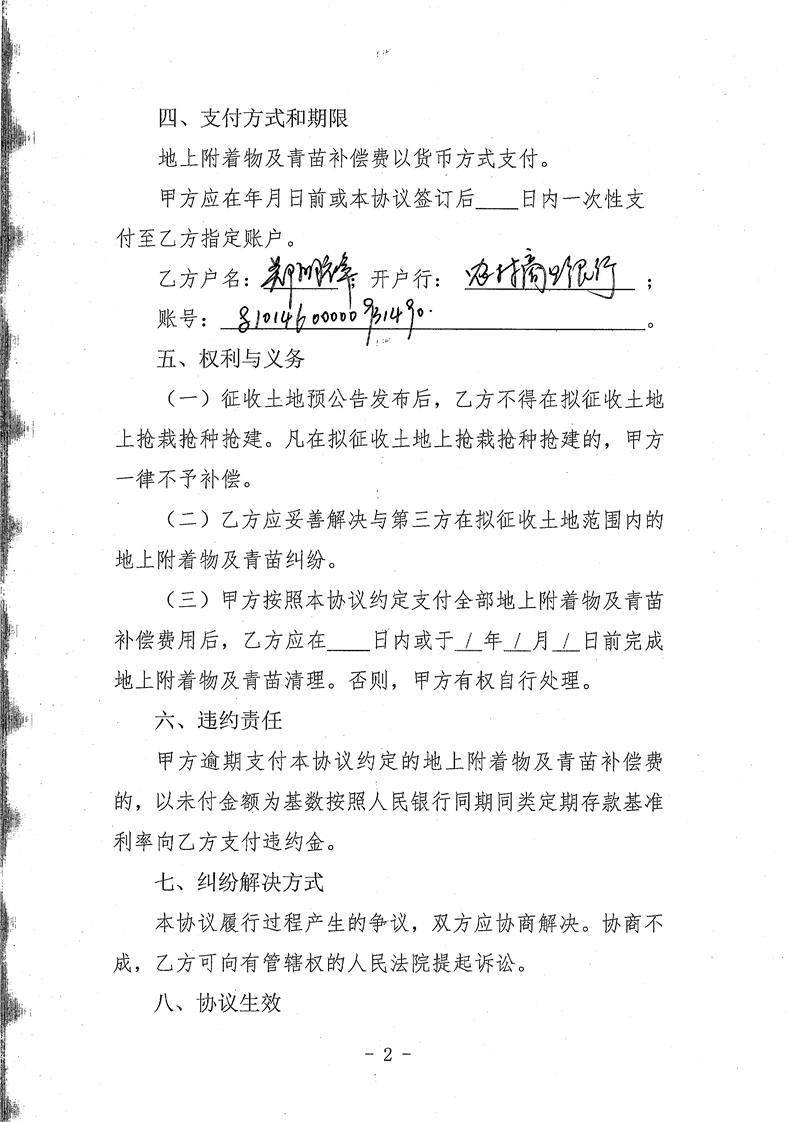 四、支付方式和期限
地上附着物及青苗补偿费以货币方式支付。
甲方应在年月日前或本协议签订后____日内一次性支
付至乙方指定账户。
乙方户名：郑明峰；开户行：农村商业银行；
账号：
五、权利与义务
（一）征收土地预公告发布后，乙方不得在拟征收土地
上抢栽抢种抢建。凡在拟征收土地上抢栽抢种抢建的，甲方
一律不予补偿。
（二）乙方应妥善解决与第三方在拟征收土地范围内的
地上附着物及青苗纠纷。
（三）甲方按照本协议约定支付全部地上附着物及青苗
补偿费用后，乙方应在____日内或于_/_年_/_月_/_日前完成
地上附着物及青苗清理。否则，甲方有权自行处理。
六、违约责任
甲方逾期支付本协议约定的地上附着物及青苗补偿费
的，以未付金额为基数按照人民银行同期同类定期存款基准
利率向乙方支付违约金。
七、纠纷解决方式
本协议履行过程产生的争议，双方应协商解决。协商不
成，乙方可向有管辖权的人民法院提起诉讼。
八、协议生效
- 2 -